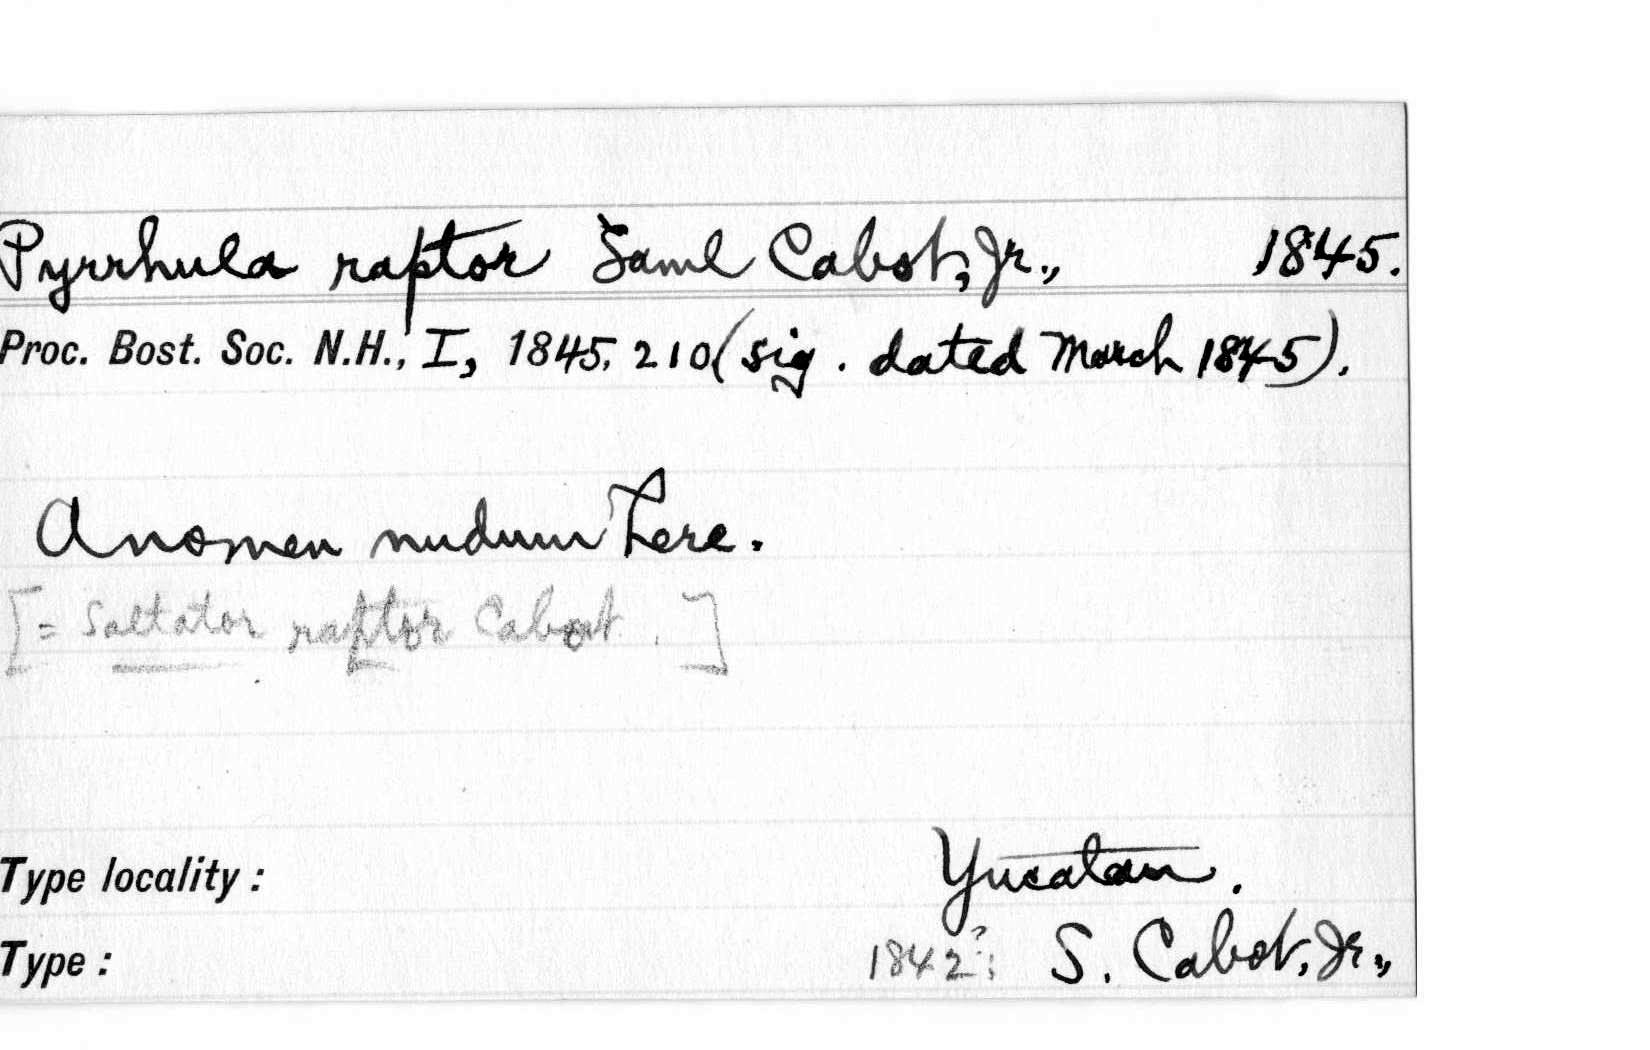 Pyrrhula raptor Saml Cabot, Jr., 1845.
Proc. Bost. Soc. N.H., I, 1845, 210 (sig. dated March 1845).
A nomen nudum here.
[= Saltator raptor Cabot.]
Type locality: Yucatan.
Type: 1842?; S. Cabot, Jr.,